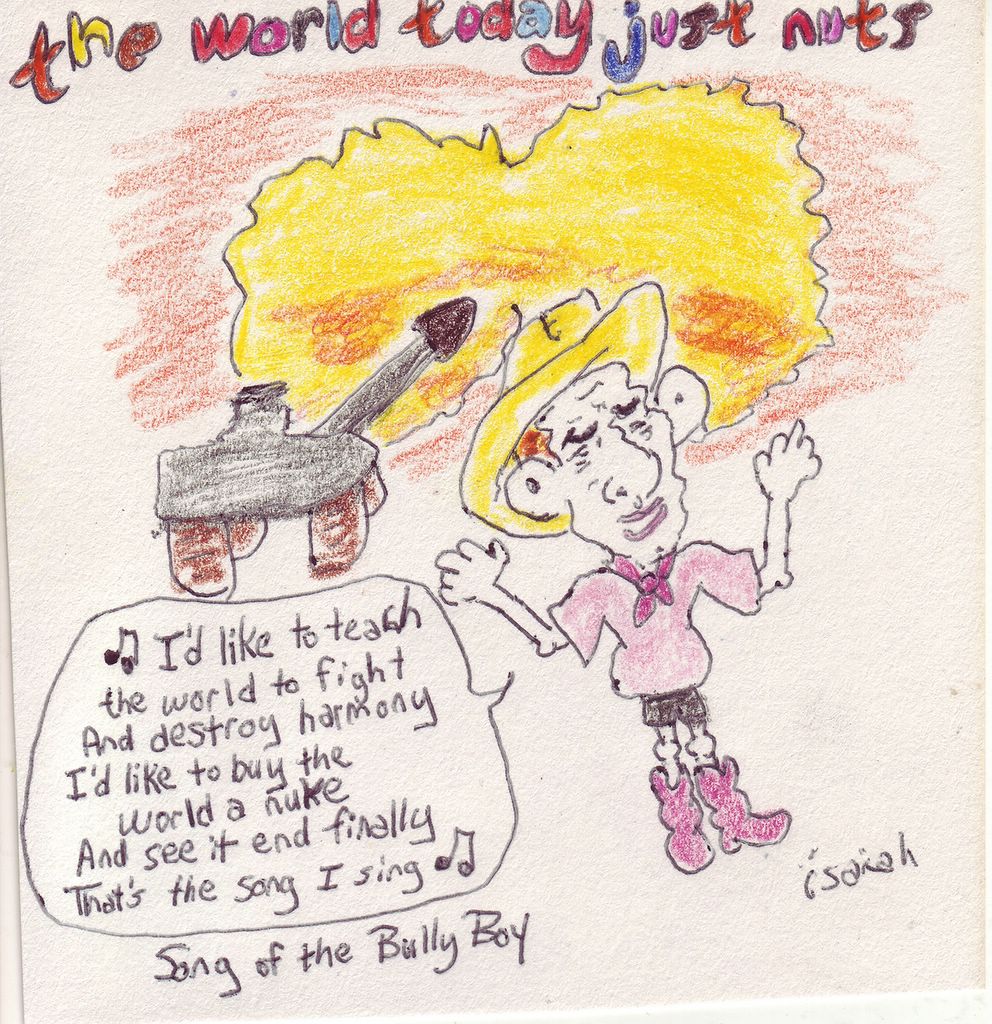 the world today just nuts
♫ I'd like to teach
the world to fight
And destroy harmony
I'd like to buy the
world a nuke
And see it end finally
That's the song I sing ♫
Song of the Bully Boy
isaiah